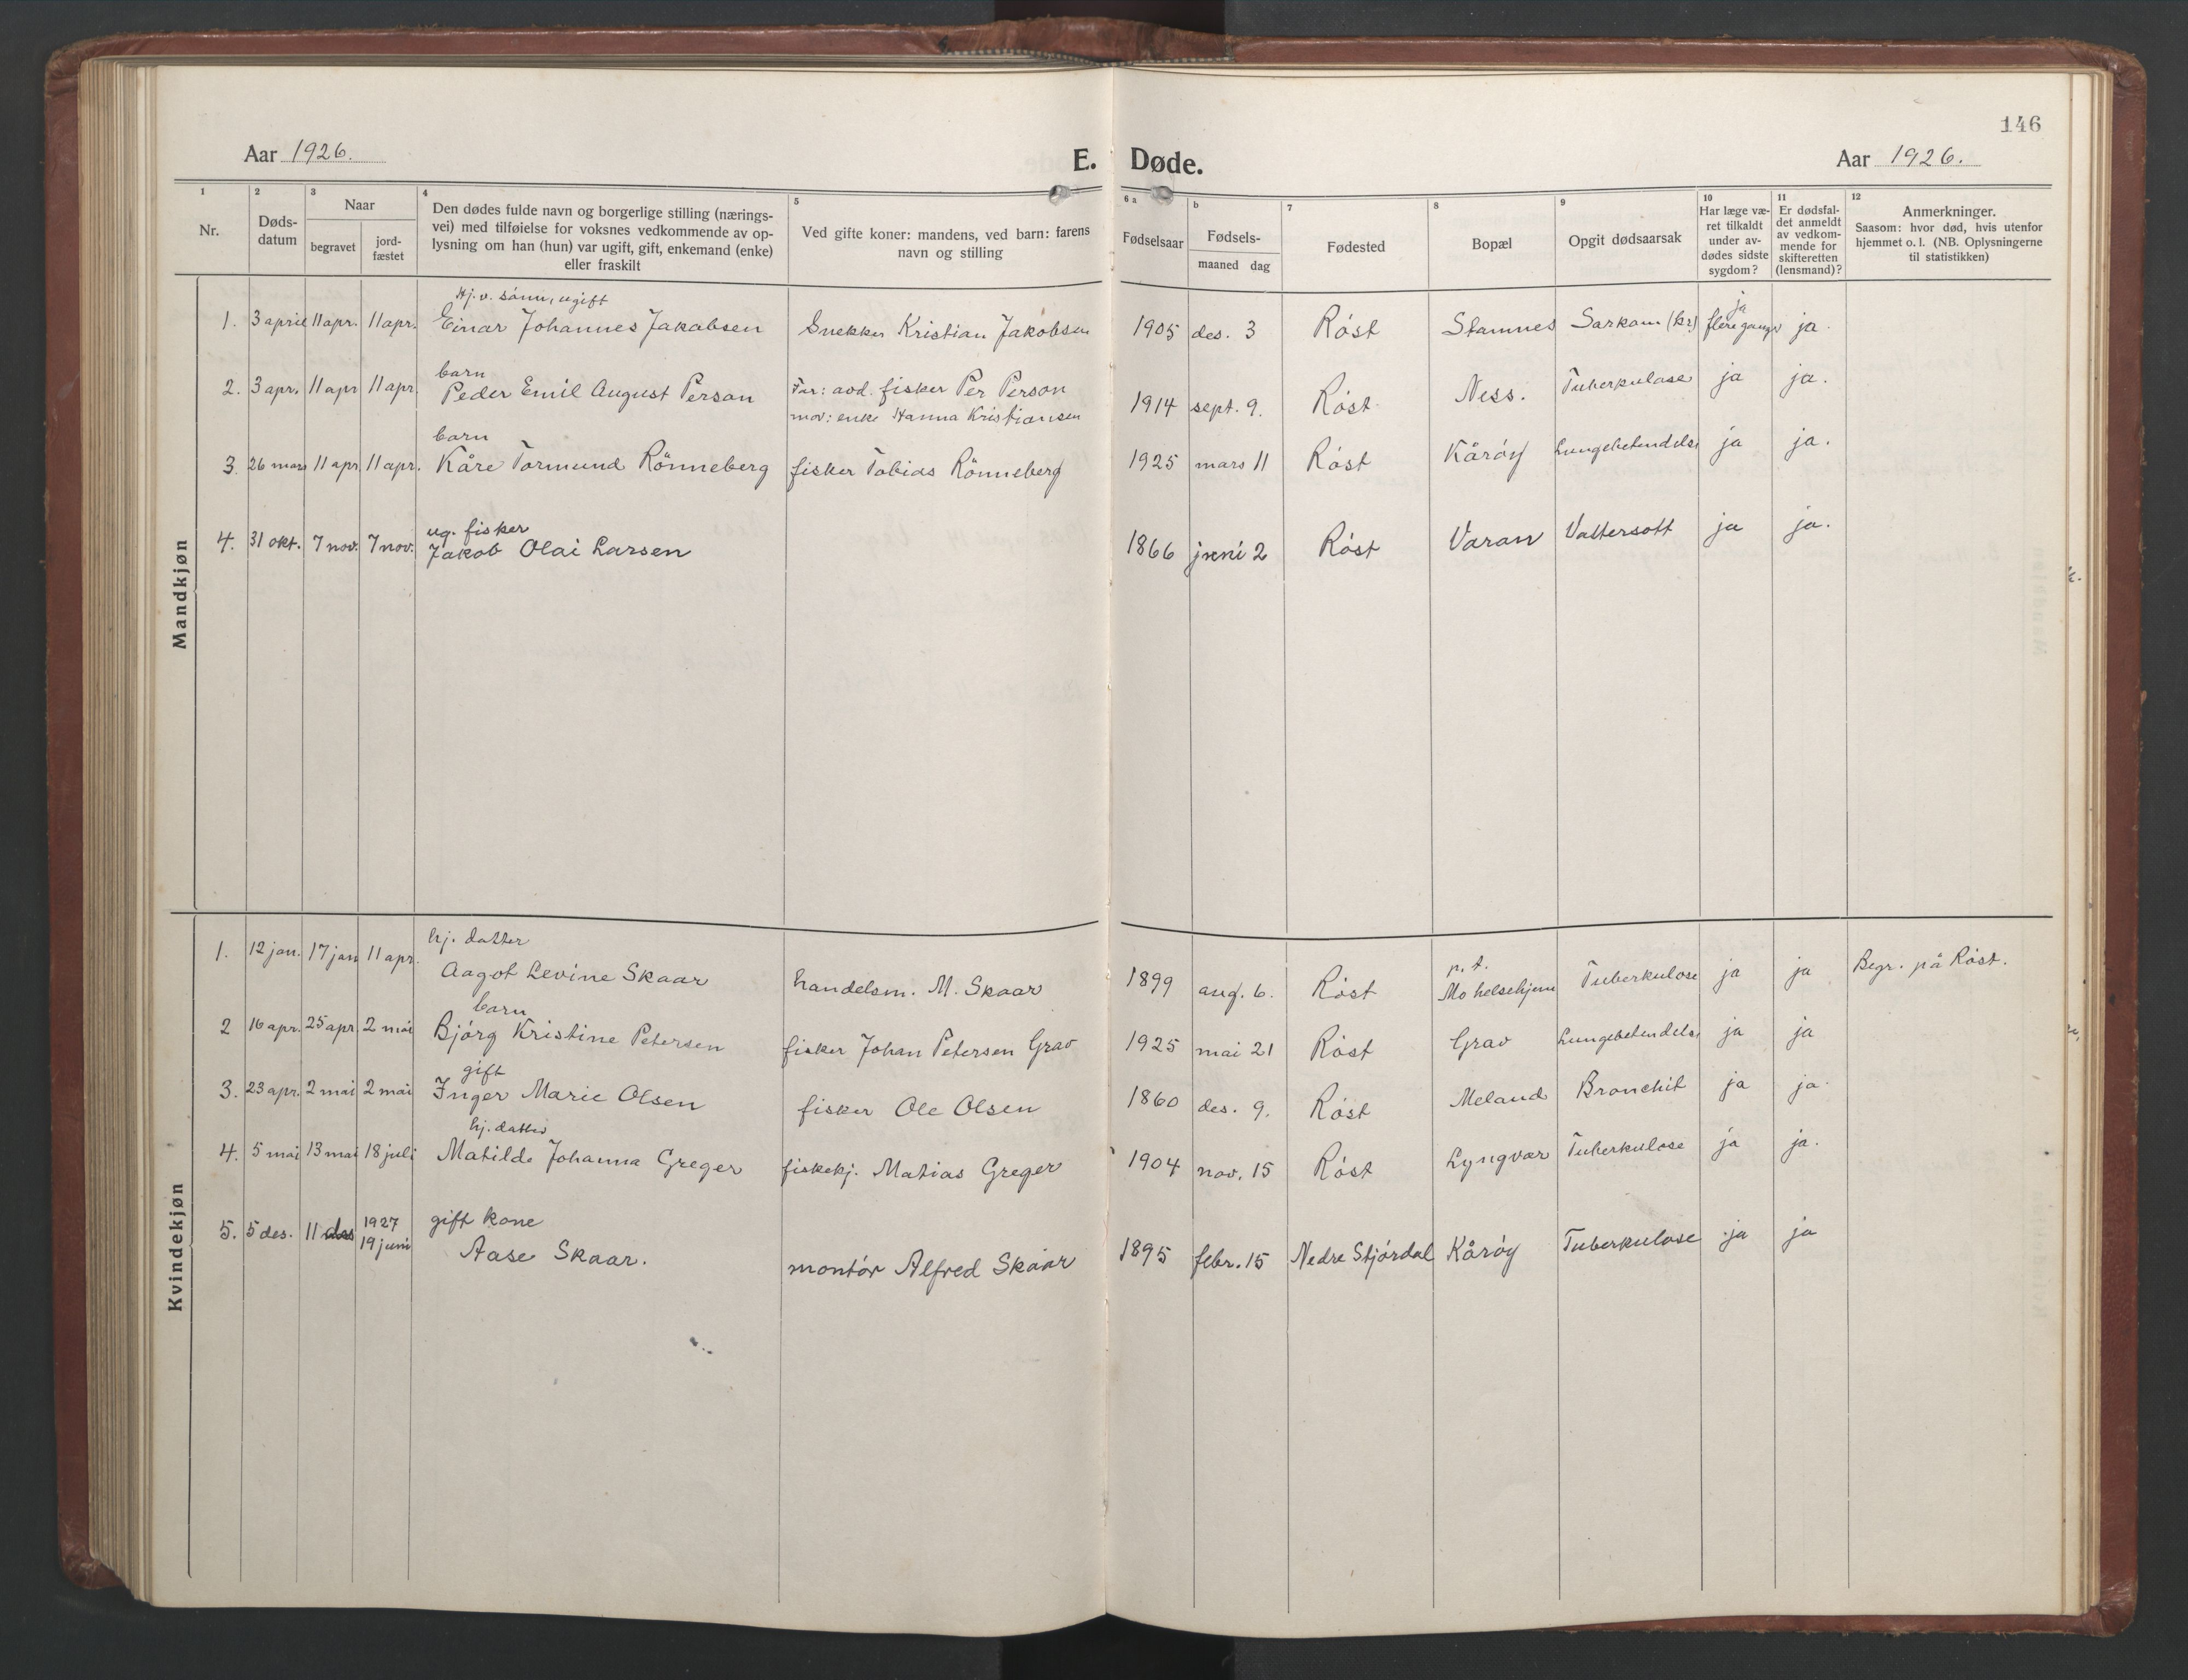 146
Aar 1926.
E. Døde.
Aar 1926.
1
2
3
4
5
6 a
b
7
8
9
10
11
12
Nr.
Døds-
datum
Naar
begravet
jord-
fæstet
Den dødes fulde navn og borgerlige stilling (nærings-
vei) med tilføielse for voksnes vedkommende av op-
lysning om han (hun) var ugift, gift, enkemand (enke)
eller fraskilt
Ved gifte koner: mandens, ved barn: farens
navn og stilling
Fødselsaar
Fødsels-
maaned dag
Fødested
Bopæl
Opgit dødsaarsak
Har læge væ-
ret tilkaldt
under av-
dødes sidste
sygdom?
Er dødsfal-
det anmeldt
av vedkom-
mende for
skifteretten
(lensmand)?
Anmerkninger.
Saasom: hvor død, hvis utenfor
hjemmet o. l. (NB. Oplysningerne
til statistikken)
Mandkjøn
Hj. v. sönn, ugift
ja
1. 3 april 11 apr. 11 apr. Einar Johannes Jakobsen Snekker Kristian Jakobsen 1905 des. 3 Röst Stamnes Sarkom (kr) flere ganger ja.
barn
2. 3 apr. 11 apr 11 apr. Peder Emil August Person Far: avd. fisker Per Person 1914 sept. 9. Röst Ness. Tuberkulose ja ja.
mor: enke Hanna Kristiansen
barn
3. 26 mars 11 apr 11 apr. Kåre Tormund Rönneberg fisker Tobias Rönneberg 1925 mars 11 Röst Kåröy Lungebetendelse ja ja.
ug. fisker
4. 31 okt. 7 nov. 7 nov. Jakob Olai Larsen 1866 juni 2 Röst Varan Vattersott ja ja.
Kvindekjøn
hj. datter
p. t.
1. 12 jan. 17 jan 11 apr. Aagot Levine Skaar handelsm. M. Skaar 1899 aug. 6. Röst Mo helsehjem Tuberkulose ja ja Begr. på Röst.
barn
2 16 apr. 25 apr 2 mai Björg Kristine Petersen fisker Johan Petersen Grav 1925 mai 21 Röst Grav Lungebetendelse ja ja
gift
3. 23 apr. 2 mai 2 mai Inger Marie Olsen fisker Ole Olsen 1860 des. 9. Röst Meland Bronchit ja ja
hj. datter
4. 5 mai 13 mai 18 juli Matilde Johanna Greger fiskekj. Matias Greger 1904 nov. 15 Röst Lyngvær Tuberkulose ja ja.
1927 gift kone
5. 5 des. 11 des 19 juni Aase Skaar. montör Alfred Skaar 1895 febr. 15 Nedre Stjördal Kåröy Tuberkulose ja ja